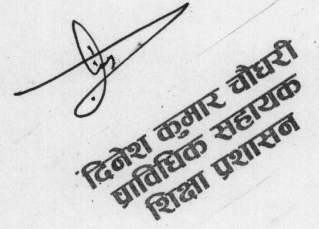 दिनेश कुमार चौधरी
प्राविधिक सहायक
शिक्षा प्रशासन